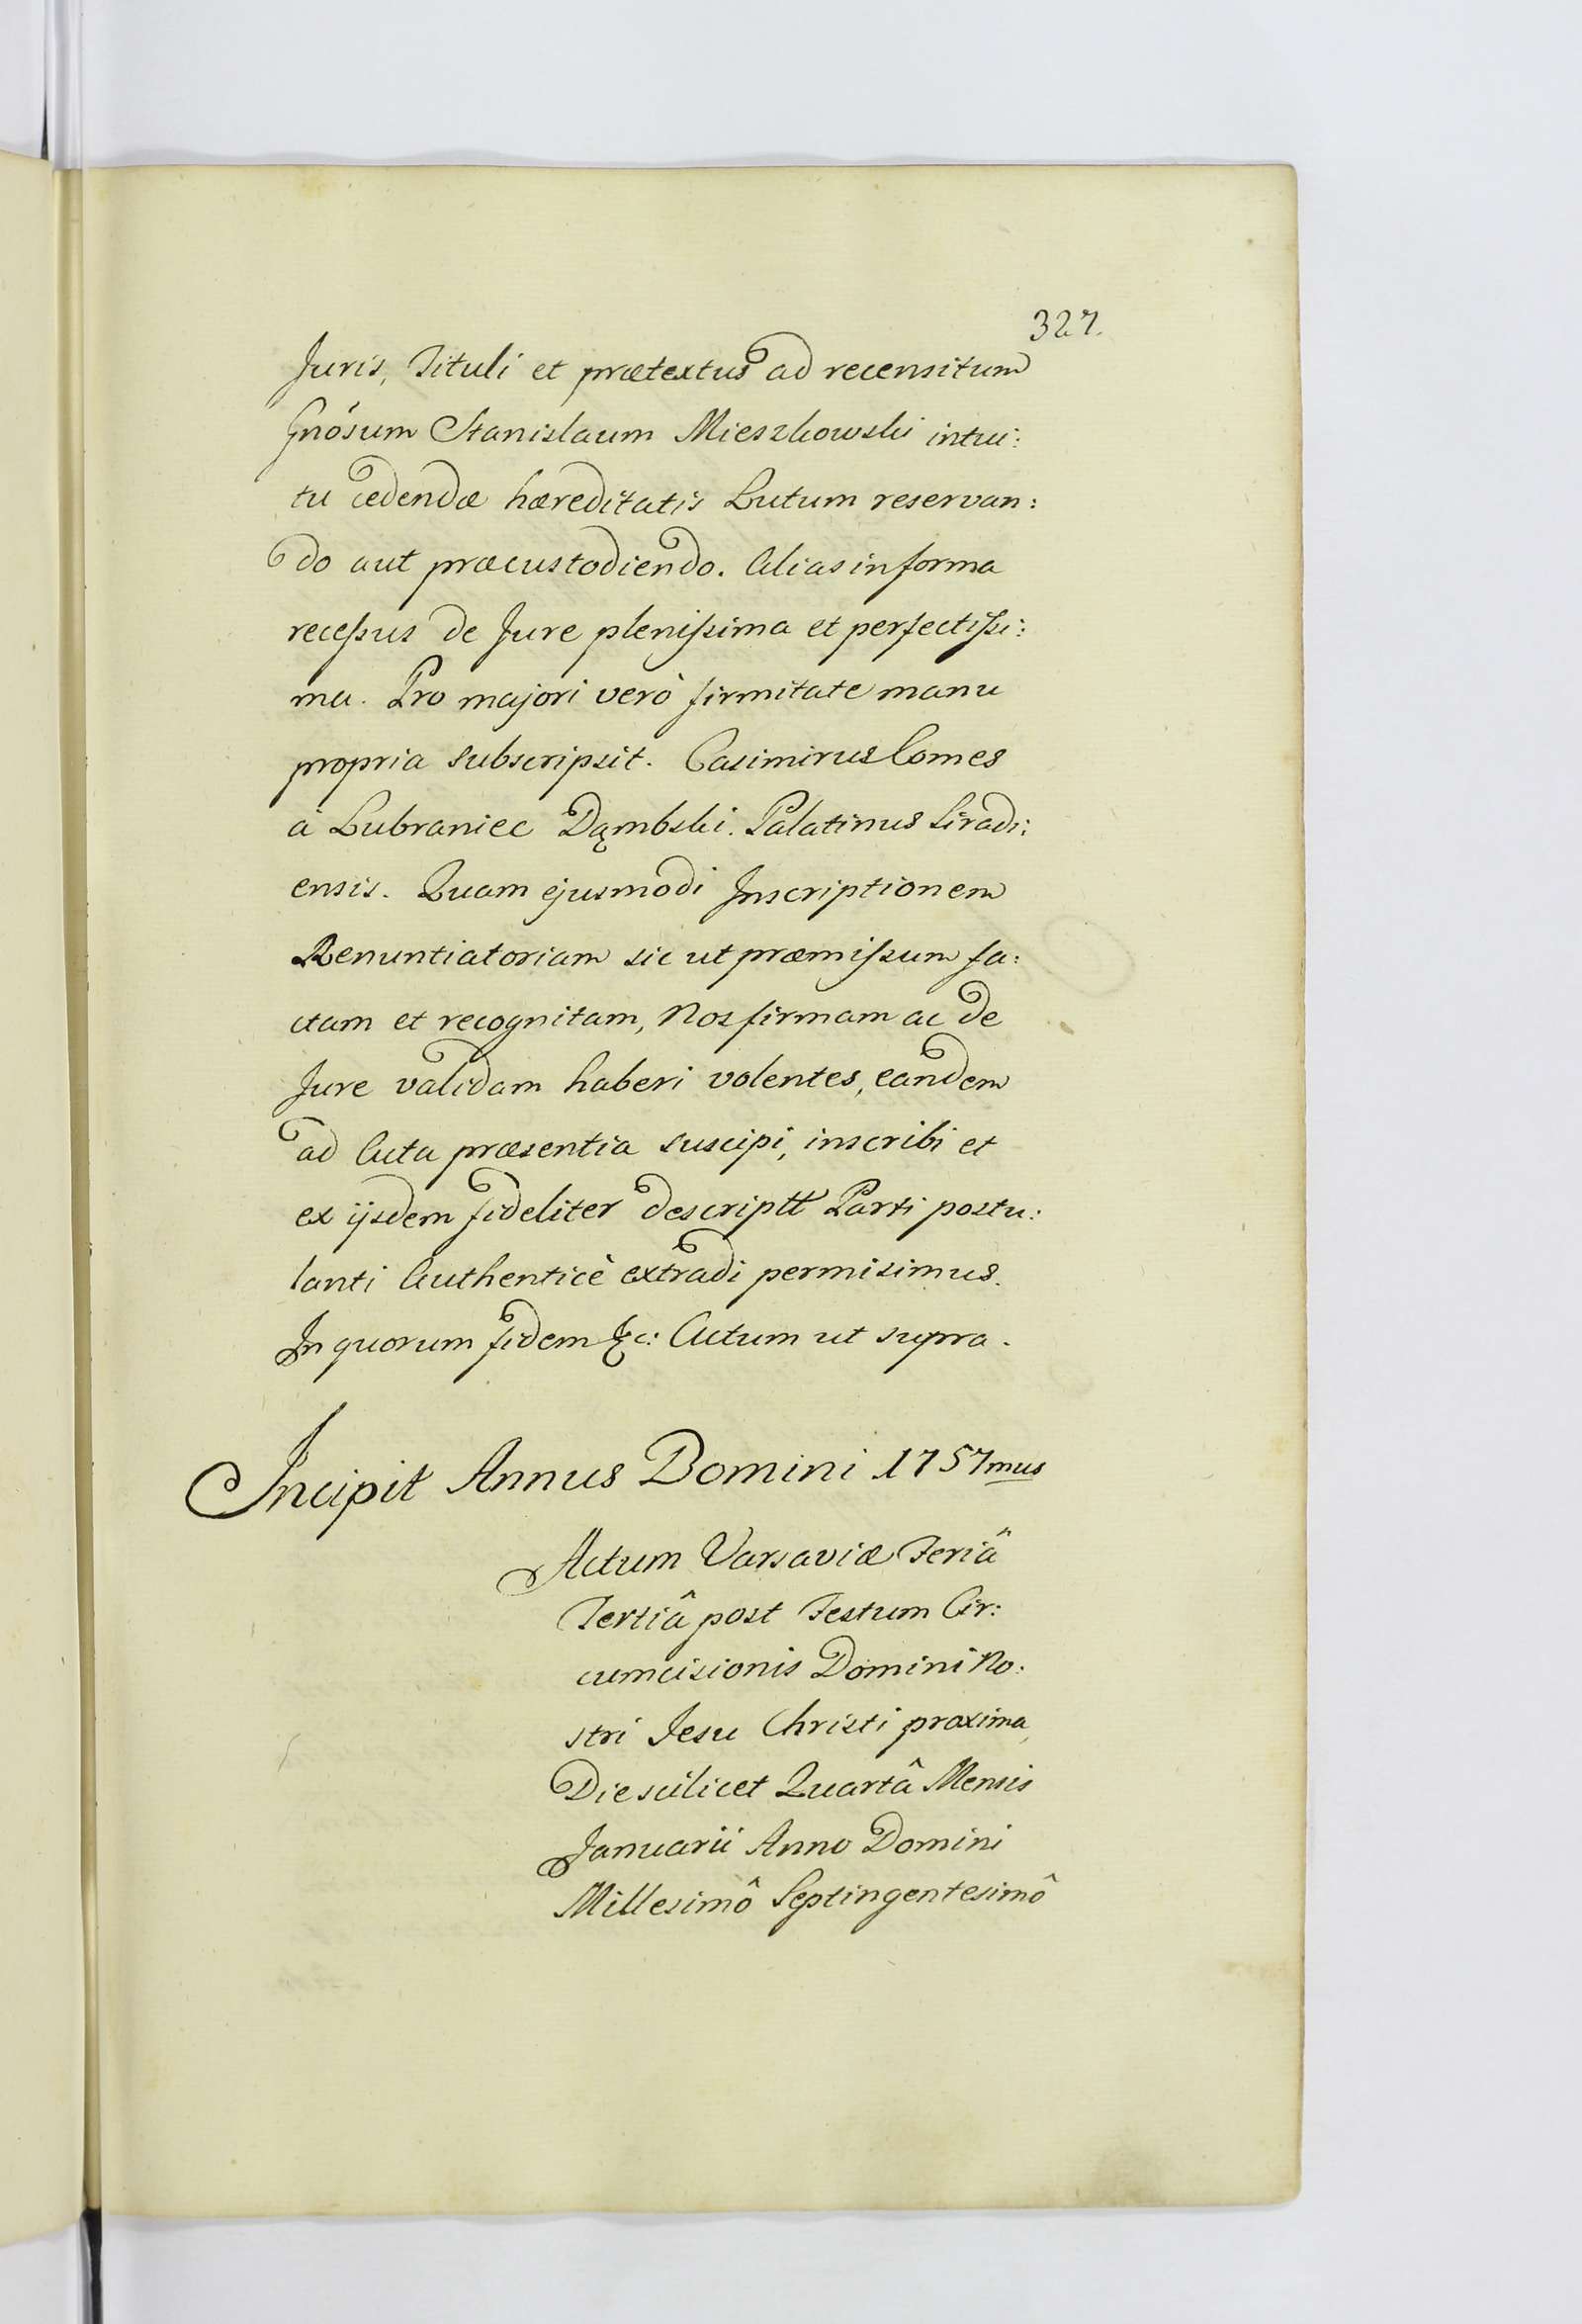 327.
Juris, Tituli et prætextus ad recensitum
Gnôsum Stanislaum Mieszkowski intui:
tu cedendæ hæreditatis Lutum reservan:
do aut præcustodiendo. Alias in forma
recessus de Jure plenissima et perfectissi:
ma. Pro majori verò firmitate manu
propria subscripsit. Casimirus Comes
à Lubraniec Dąmbski. Palatinus Siradi:
ensis. Quam ejusmodi Inscriptionem
Renuntiatoriam sic ut præmissum fa:
ctam et recognitam, Nos firmam ac de
Jure validam haberi volentes, eandem
ad Acta præsentia suscipi, inscribi et
ex ijsdem fideliter descriptt Parti postu:
lanti Authenticè extradi permisimus.
In quorum fidem &c: Actum ut supra.
Incipit Annus Domini 1757mus
Actum Varsaviæ Feriâ
Tertiâ post Festum Cir:
cumcisionis Domini No:
stri Jesu Christi proxima,
Die scilicet Quartâ Mensis
Januarii Anno Domini
Millesimô Septingentesimô